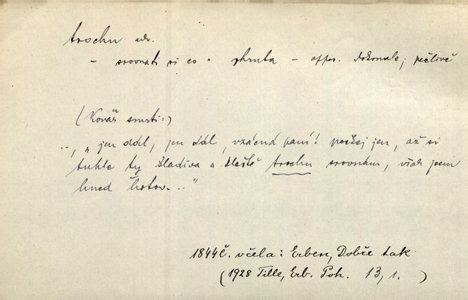 trochu adv.
- srovnati si co = zhruba - oppos. dokonale, pečlivě
(Kovář smrti:)
"„ jen dál, jen dál, vzácná paní! počkej jen, až si
tuhle ty kladiva a kleště trochu srovnám, však jsem
hned hotov..."
1844 Č. včela: Erben, Dobře tak
(1928 Tille, Erb. Poh. 13, 1. )